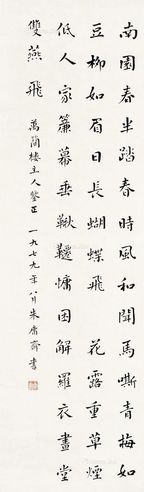 南園春半踏春時風和聞馬嘶青梅如
豆柳如眉日長蝴蝶飛 花露重草煙
低人家簾幕垂鞦韆慵困解羅衣畫堂
雙燕飛 萬蘭樓主人鑒正 一九七九年八月朱庸齋書